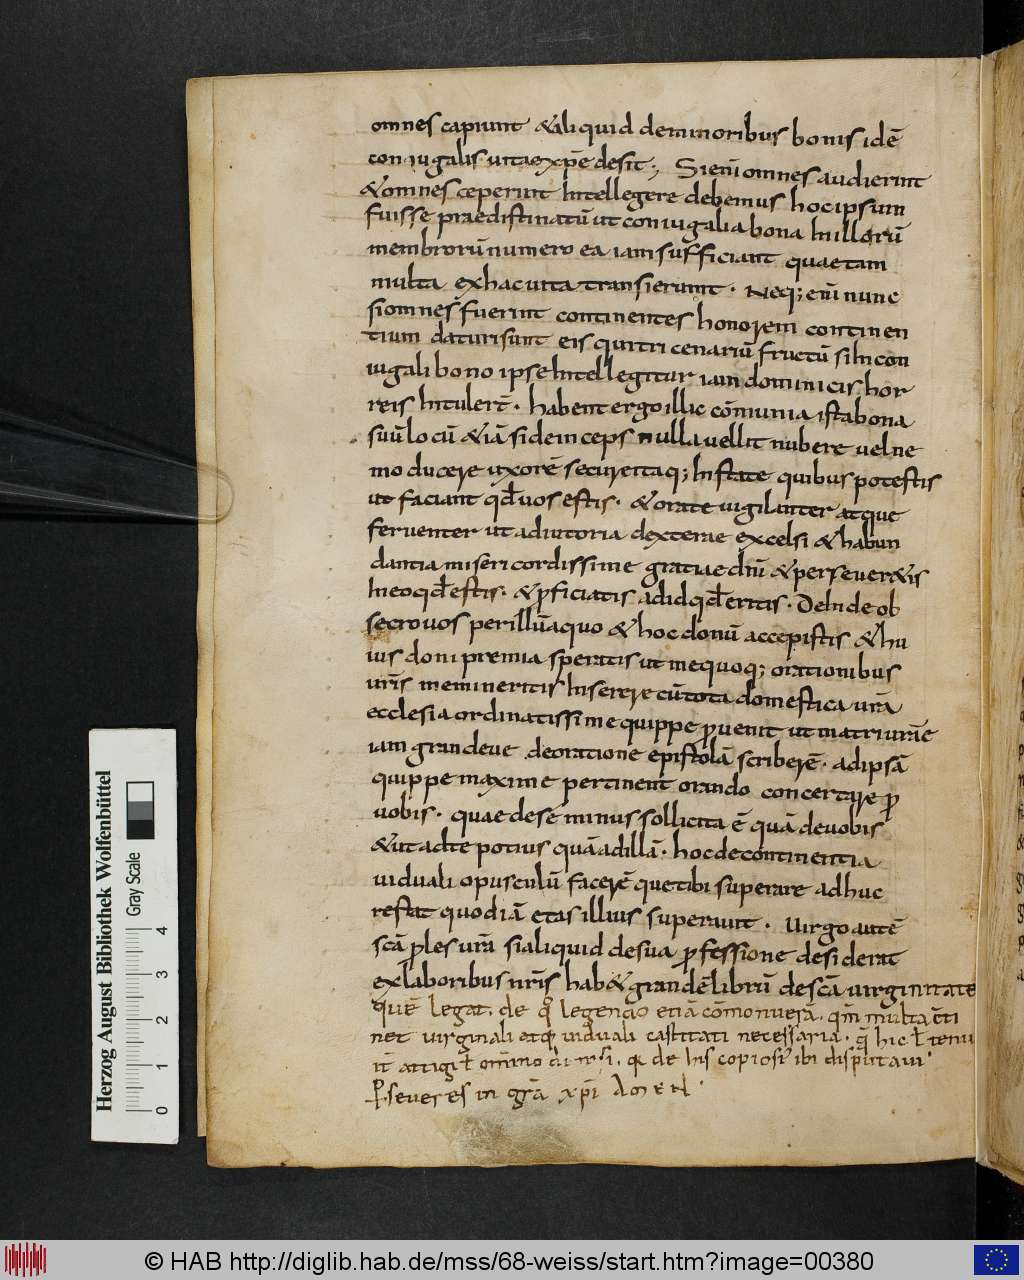 omnes capiunt &aliquid deminoribus bonis idē
coniugalis uitaexpēdesit; Sienī omnes audierint
&omnes ceperint Intellegere debemus hocipsum
fuisse praedistinatū ut coniugalia bona Inillorū
membrorū numero ea iam sufficiant quaetam
multa exhacuita transierunt. Neq; enī nunc
siomnes fuerint continentes honorem continen
tium daturisunt eis quitricenariū fructū siIncon
iugali bono ipseIntellegitur iam dominicis hor
reis Intulerē. habent ergo illic cōmunia istabona
suū locū &iā sideinceps nulla uellit nubere uel ne
mo ducere uxorē secureitaq; Instate quibus potestis
ut faciant qđ uos estis. &orate uigilanter atque
feruenter ut adiutoria dexterae excelsi & habun
dantia misericordissime gratiae dnī &perseuer&is
Ineoqđestis. &pficiatis adidqđeritis. DeIndeob
secro uos perillūaquo &hoc donū accepistis &hu
ius doni premia speratis ut mequoq; orationibus
urīs memineritis Inserere cūtota domestica urā
ecclesia ordinatissime quippe puenit ut matri urāe
iam grandeue deoratione epistolā scriberē. adipsā
quippe maxime pertinent orando concertare p
uobis. quae desē minus sollicita ē quā deuobis
&ut adte potius quā adillā. hocdecontinentia
uiduali opusculū facerē quetibi superare adhuc
restat quod iā etas illius superauit. Uirgo autē
scā ples urā sialiquid desua pfessione desiderat
exlaboribus nrīs hab& grandē librū descā uirginitate
quē legat. de quo legendo etiā cōmonuerā. qm̄ multa cōti
net uirginali atque uiduali castitati necessaria. q̄ hic
Pseueres in grā xpī Amen.